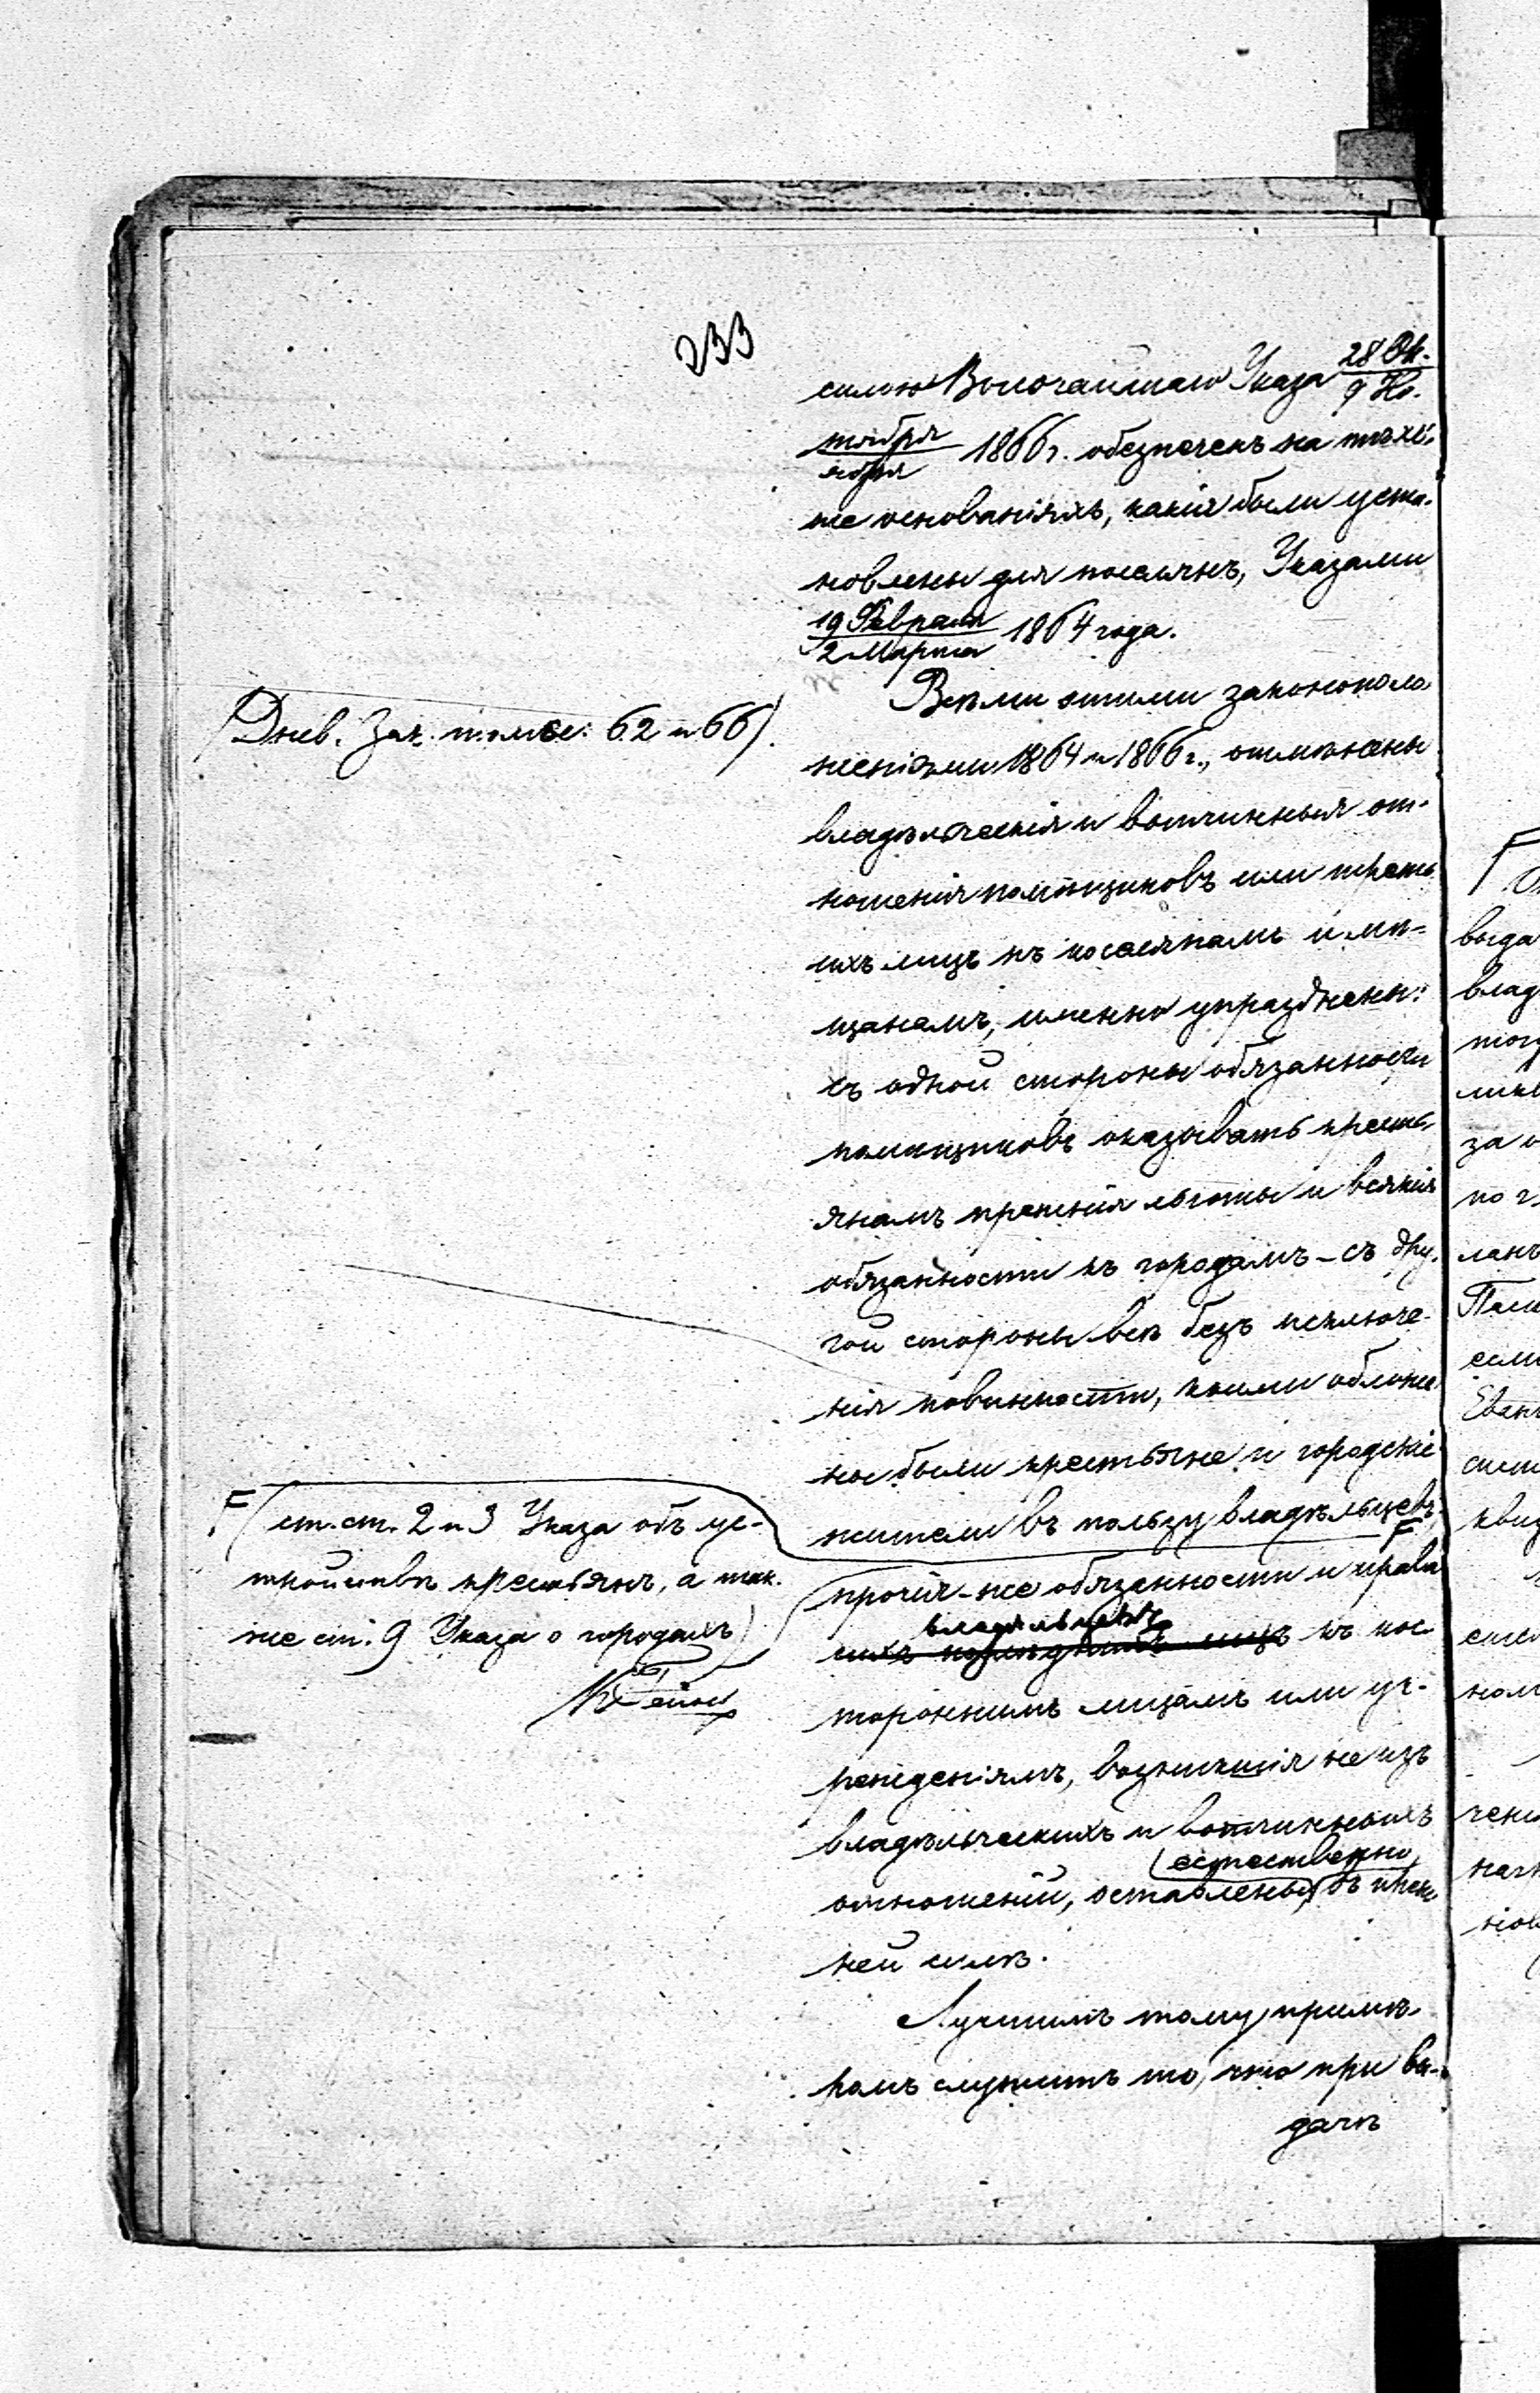 233
силою Высочайшаго Указа 28 Ок-
9 Но-
тября
ября 1866 г. обезпеченъ на тѣхъ-
же основаніяхъ, какія были уста-
новлены для поселянъ, Указами
19 Февраля
2 Марта 1864 года.
(Днев. Зак. томы: 62 и 66).
Всѣми этими законополо-
женіями 1864 и 1866 г., отмѣнены
владѣльческія и вотчинныя от-
ношенія помѣщиковъ или треть-
ихъ лицъ къ поселянамъ и мѣ-
щанамъ, именно упразднены:
съ одной стороны обязанности
помѣщиковъ оказывать кресть-
янамъ прежнія льготы и всякія
обязанности къ городамъ – съ дру-
гой стороны всѣ безъ исключе-
нія повинности, коими обложе-
ны были крестьяне и городскіе
жители въ пользу владѣльцевъ;
F (ст. ст. 2 и 3 Указа объ ус-
тройствѣ крестьянъ, а так-
же ст. 9 Указа о городахъ)
прочія-же обязанности и права
владѣльцевъ
сихъ послѣднихъ лицъ къ пос-
тороннимъ лицамъ или уч-
режденіямъ, возникшія не изъ
владѣльческихъ и вотчинныхъ
естественно
отношеній, оставлены въ преж-
ней силѣ.
Лучшимъ тому примѣ-
ромъ служитъ то, что при вы-
дачѣ